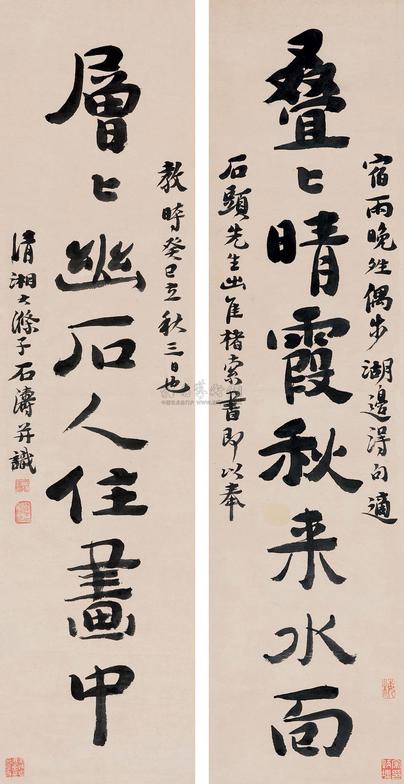 宿雨晚姓偶步湖邊得句適
叠〻晴霞秋来水面
石頭先生出隹楮索書即以奉
教時癸巳立秋三日也
層〻幽石人住畫中
清湘大滌子石濤并識